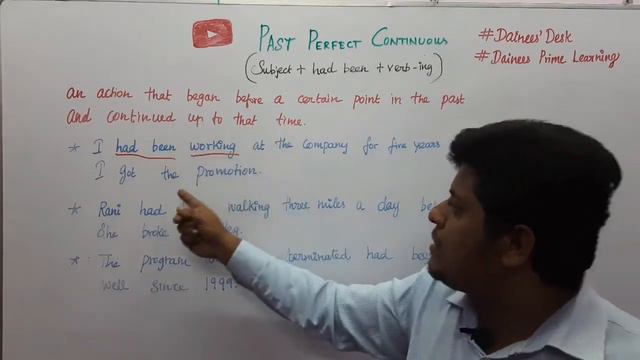 PAST PERFECT CONTINUOUS
(Subject + had been + verb-ing)
#Dainees' Desk
#Dainees Prime Learning
an action that began before a certain point in the past
and continued up to that time.
* I had been working at the company for five years
I got the promotion.
* Rani had walking three miles a day
She broke
* The program terminated had
well since 1999.